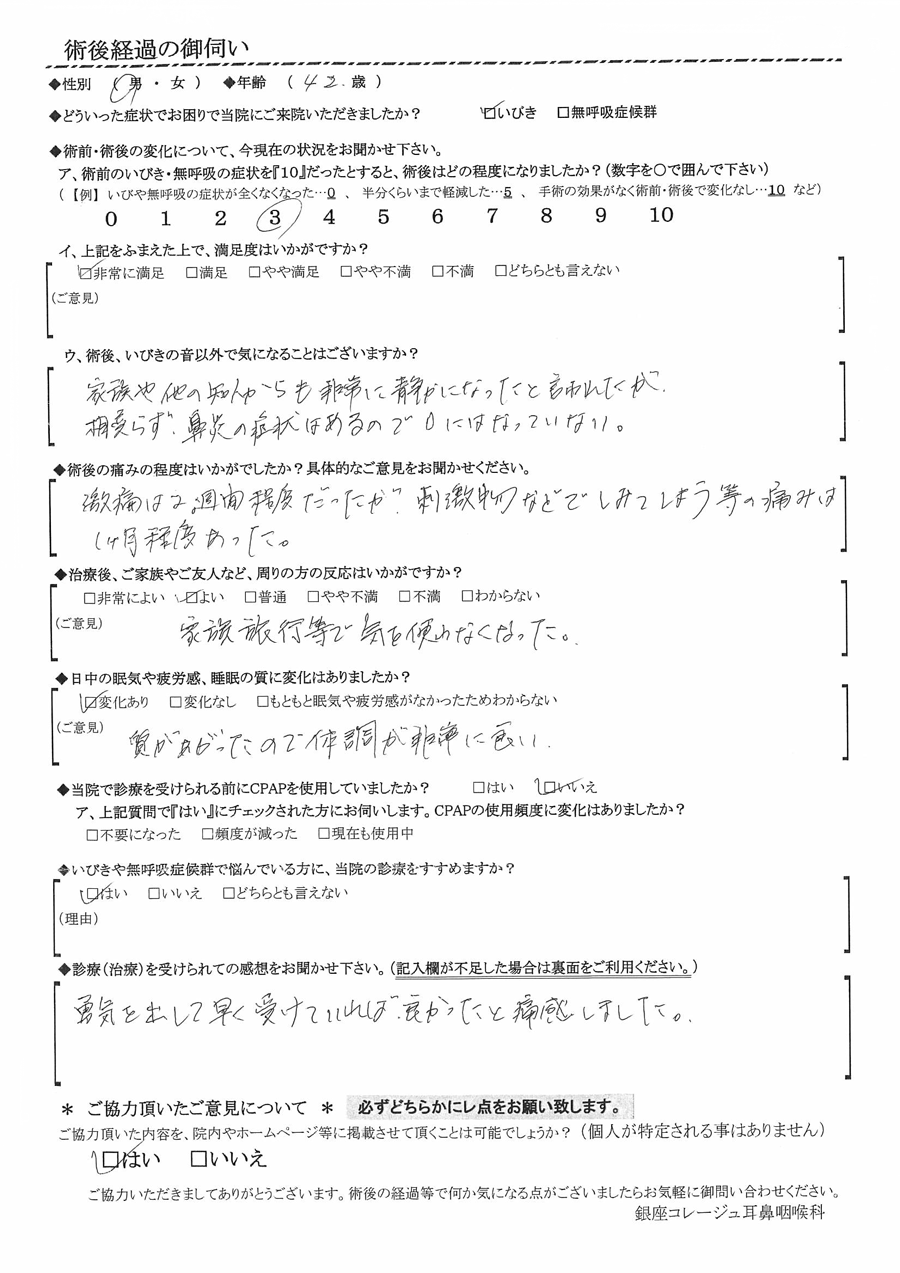 術後経過の御伺い
◆性別 （ 男 ・ 女 ） ◆年齢 （ 42 歳 ）
◆どういった症状でお困りで当院にご来院いただきましたか？ ☑いびき □無呼吸症候群
◆術前・術後の変化について、今現在の状況をお聞かせ下さい。
ア、術前のいびき・無呼吸の症状を『10』だったとすると、術後はどの程度になりましたか？（数字を○で囲んで下さい）
（【例】 いびや無呼吸の症状が全くなくなった…0 、 半分くらいまで軽減した…5 、 手術の効果がなく術前・術後で変化なし…10 など）
0 1 2 3 4 5 6 7 8 9 10
イ、上記をふまえた上で、満足度はいかがですか？
☑非常に満足 □満足 □やや満足 □やや不満 □不満 □どちらとも言えない
（ご意見）
ウ、術後、いびきの音以外で気になることはございますか？
家族や他の知人からも非常に静かになったと言われたが、
相変らず、鼻炎の症状はあるので0にはなっていない。
◆術後の痛みの程度はいかがでしたか？具体的なご意見をお聞かせください。
激痛は2週間程度だったが、刺激物などでしみてしまう等の痛みは
1ヶ月程度あった。
◆治療後、ご家族やご友人など、周りの方の反応はいかがですか？
□非常によい ☑よい □普通 □やや不満 □不満 □わからない
（ご意見） 家族旅行等で気を使わなくなった。
◆日中の眠気や疲労感、睡眠の質に変化はありましたか？
☑変化あり □変化なし □もともと眠気や疲労感がなかったためわからない
（ご意見） 質があがったので体調が非常に良い。
◆当院で診療を受けられる前にCPAPを使用していましたか？ □はい ☑いいえ
ア、上記質問で『はい』にチェックされた方にお伺いします。CPAPの使用頻度に変化はありましたか？
□不要になった □頻度が減った □現在も使用中
◆いびきや無呼吸症候群で悩んでいる方に、当院の診療をすすめますか？
☑はい □いいえ □どちらとも言えない
（理由）
◆診療（治療）を受けられての感想をお聞かせ下さい。（記入欄が不足した場合は裏面をご利用ください。）
勇気を出して早く受けていれば、良かったと痛感しました。
＊ ご協力頂いたご意見について ＊ 必ずどちらかにレ点をお願い致します。
ご協力頂いた内容を、院内やホームページ等に掲載させて頂くことは可能でしょうか？（個人が特定される事はありません）
☑はい □いいえ
ご協力いただきましてありがとうございます。術後の経過等で何か気になる点がございましたらお気軽に御問い合わせください。
銀座コレージュ耳鼻咽喉科